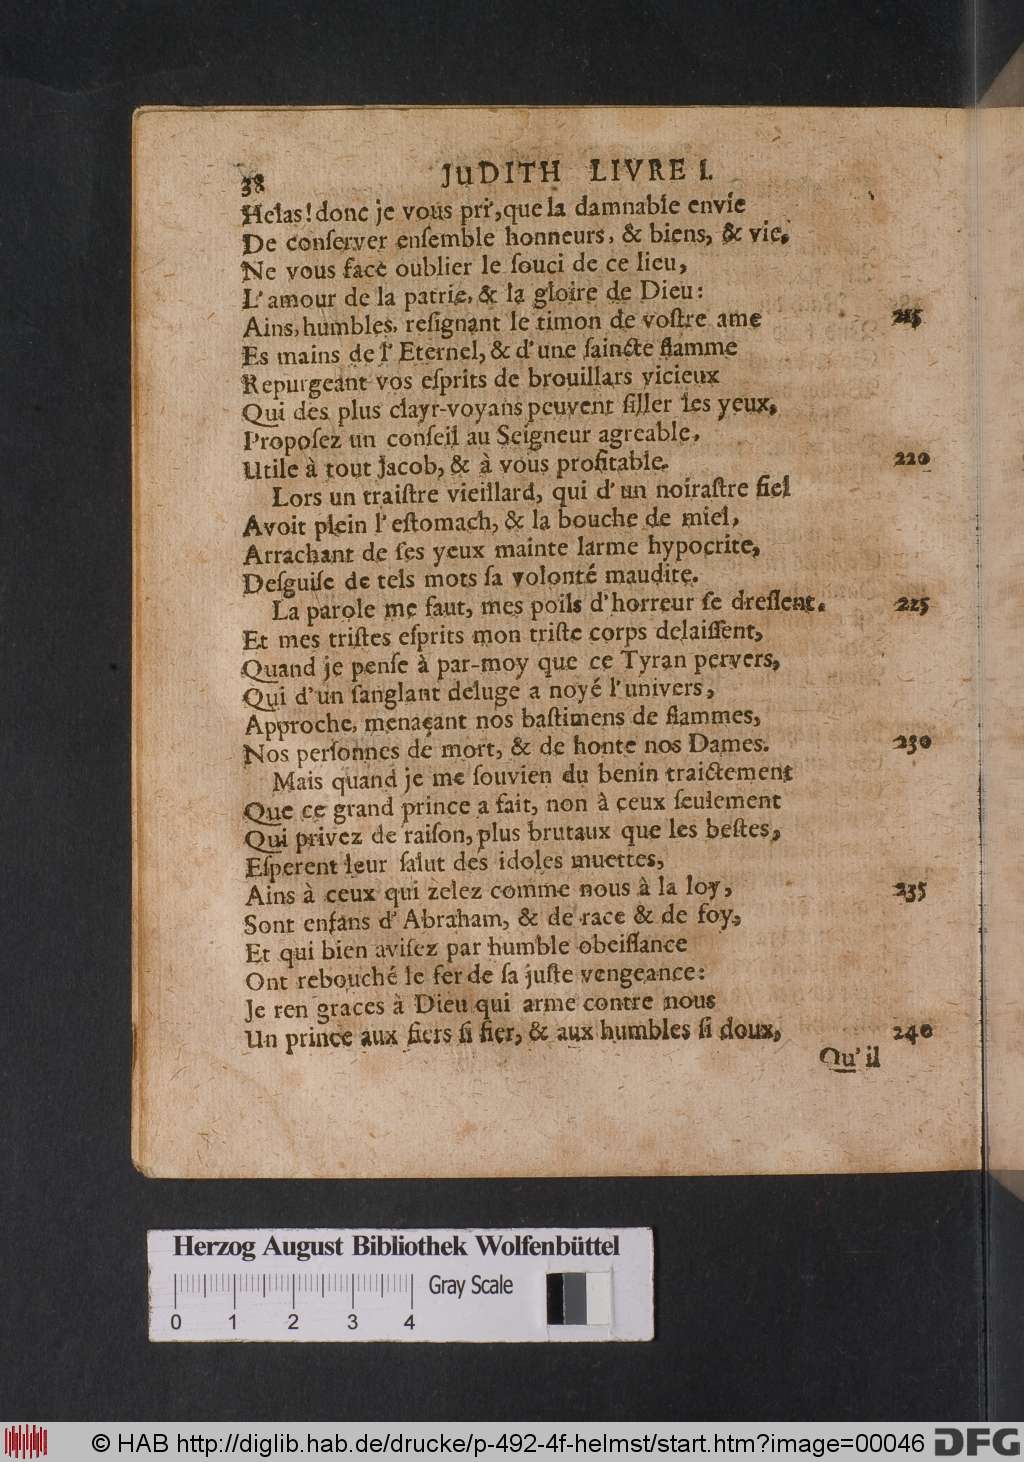 38
JUDITH LIVRE I.
Helas! donc je vous pri', que la damnable envie
De conſerver enſemble honneurs, & biens, & vie,
Ne vous face oublier le ſouci de ce lieu,
L'amour de la patrie, & la gloire de Dieu:
Ains, humbles, reſignant le timon de voſtre ame 215
Es mains de l'Eternel, & d'une ſaincte flamme
Repurgeant vos eſprits de brouillars vicieux
Qui des plus clayr-voyans peuvent ſiller les yeux,
Propoſez un conſeil au Seigneur agreable,
Utile à tout Jacob, & à vous profitable. 220
Lors un traiſtre vieillard, qui d'un noiraſtre fiel
Avoit plein l'eſtomach, & la bouche de miel,
Arrachant de ſes yeux mainte larme hypocrite,
Deſguiſe de tels mots ſa volonté maudite.
La parole me faut, mes poils d'horreur ſe dreſſent. 225
Et mes triſtes eſprits mon triſte corps delaiſſent,
Quand je penſe à par-moy que ce Tyran pervers,
Qui d'un ſanglant deluge a noyé l'univers,
Approche, menaçant nos baſtimens de flammes,
Nos perſonnes de mort, & de honte nos Dames. 230
Mais quand je me ſouvien du benin traictement
Que ce grand prince a fait, non à ceux ſeulement
Qui privez de raiſon, plus brutaux que les beſtes,
Eſperent leur ſalut des idoles muettes,
Ains à ceux qui zelez comme nous à la loy, 235
Sont enfans d'Abraham, & de race & de foy,
Et qui bien aviſez par humble obeiſſance
Ont rebouché le fer de ſa juſte vengeance:
Je ren graces à Dieu qui arme contre nous
Un prince aux fiers ſi fier, & aux humbles ſi doux, 240
Qu'il
Herzog August Bibliothek Wolfenbüttel
Gray Scale
0 1 2 3 4
© HAB http://diglib.hab.de/drucke/p-492-4f-helmst/start.htm?image=00046 DFG